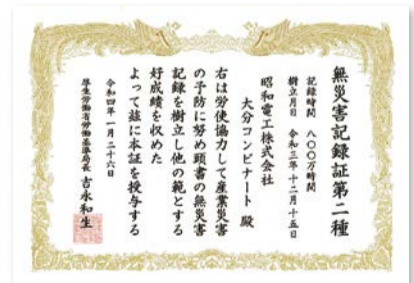 無災害記録証第二種
記録時間 八〇〇万時間
樹立月日 令和三年十二月十五日
昭和電工株式会社
大分コンビナート 殿
右は労使協力して産業災害
の予防に努め頭書の無災害
記録を樹立し他の範とする
好成績を収めた
よって茲に本証を授与する
令和四年一月二十六日
厚生労働省労働基準局長 吉永和生